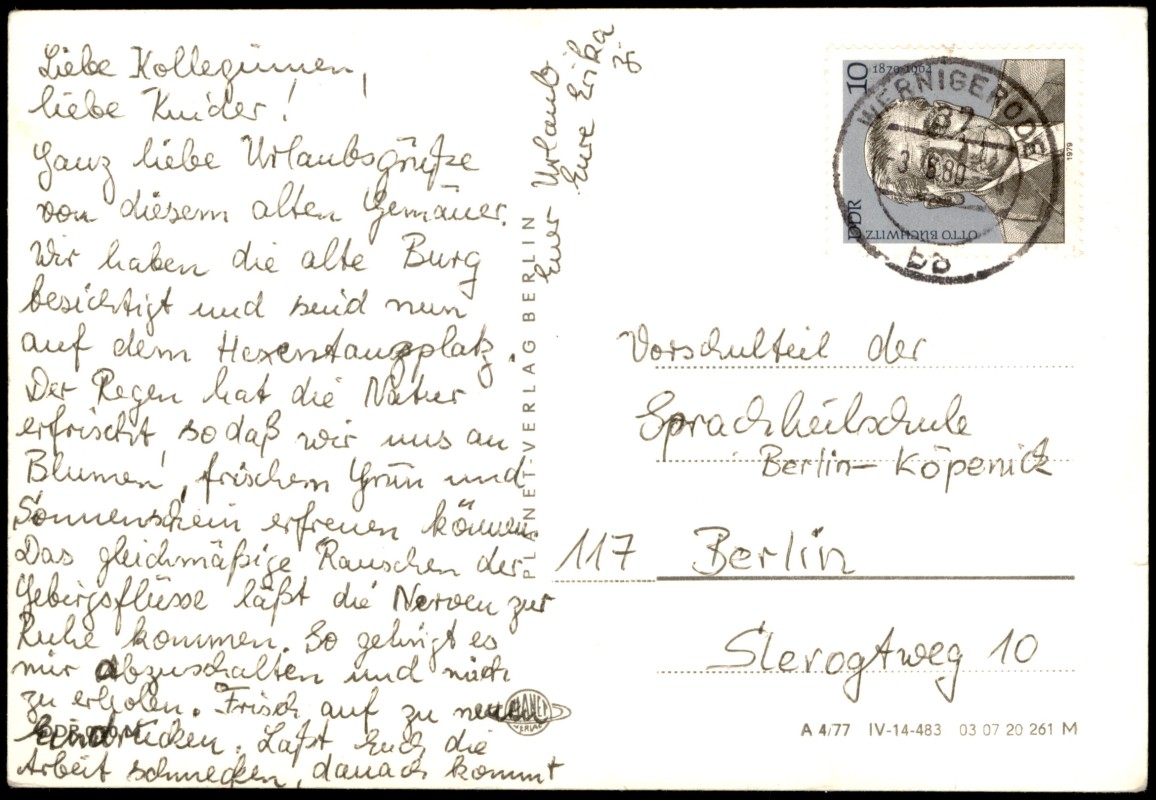 Liebe Kolleginnen,
liebe Kinder!
Ganz liebe Urlaubsgrüße
von diesem alten Gemäuer.
Wir haben die alte Burg
besichtigt und sind nun
auf dem Hexentanzplatz.
Der Regen hat die Natur
erfrischt, sodaß wir uns an
Blumen, frischem Grün und
Sonnenschein erfreuen können.
Das gleichmäßige Rauschen der
Gebirgsflüsse läßt die Nerven zur
Ruhe kommen. So gelingt es
mir abzuschalten und mich
zu erholen. Frisch auf zu neuen
Eindrücken. Laßt Euch die
Arbeit schmecken, danach kommt
Euer Urlaub
Eure Erika
PLANET-VERLAG BERLIN
PLANET
VERLAG
10
1879-1964
DDR
OTTO BUCHWITZ
1979
WERNIGERODE
37
-3.6.80
bb
Vorschulteil der
Sprachheilschule
Berlin-Köpenick
117 Berlin
Slerogtweg 10
A 4/77 IV-14-483 03 07 20 261 M